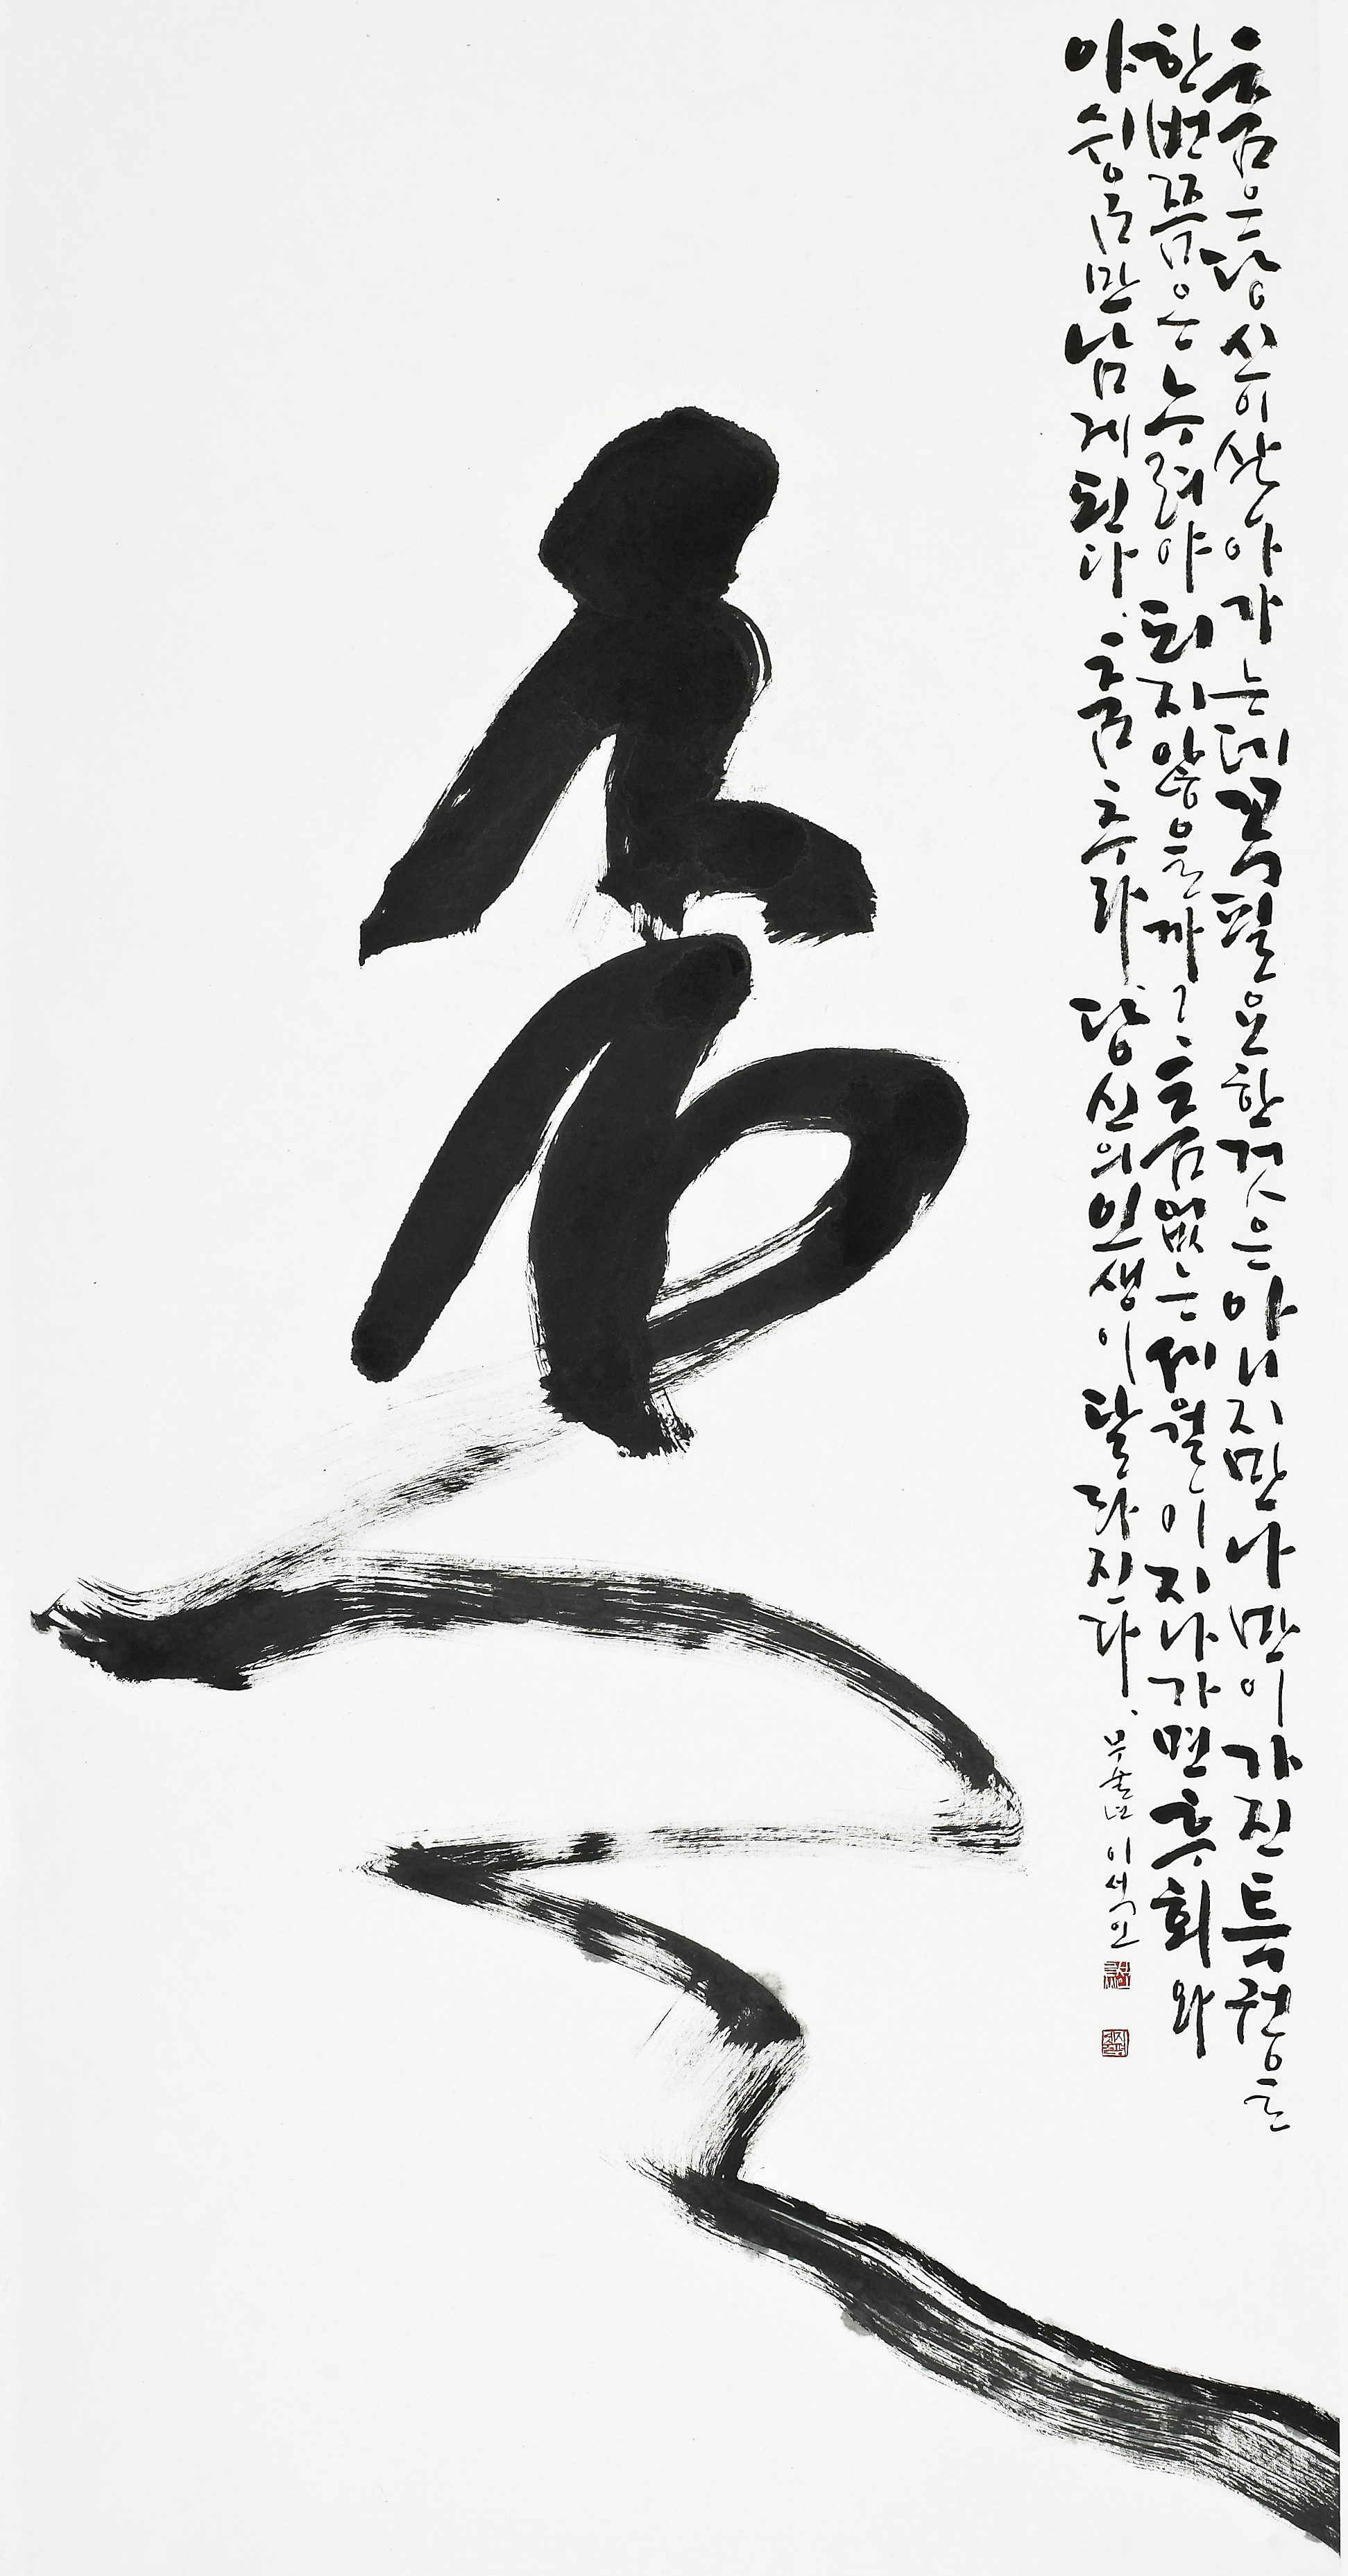 춤은 당신이 살아가는데 꼭 필요한 것은 아니지만 나만이 가진 특권을
한번쯤은 누려야 되지 않을까? 춤 없는 세월이 지나가면 후회와
아쉬움만 남게 된다. 춤추라. 당신의 인생이 달라진다. 무술년 이석인